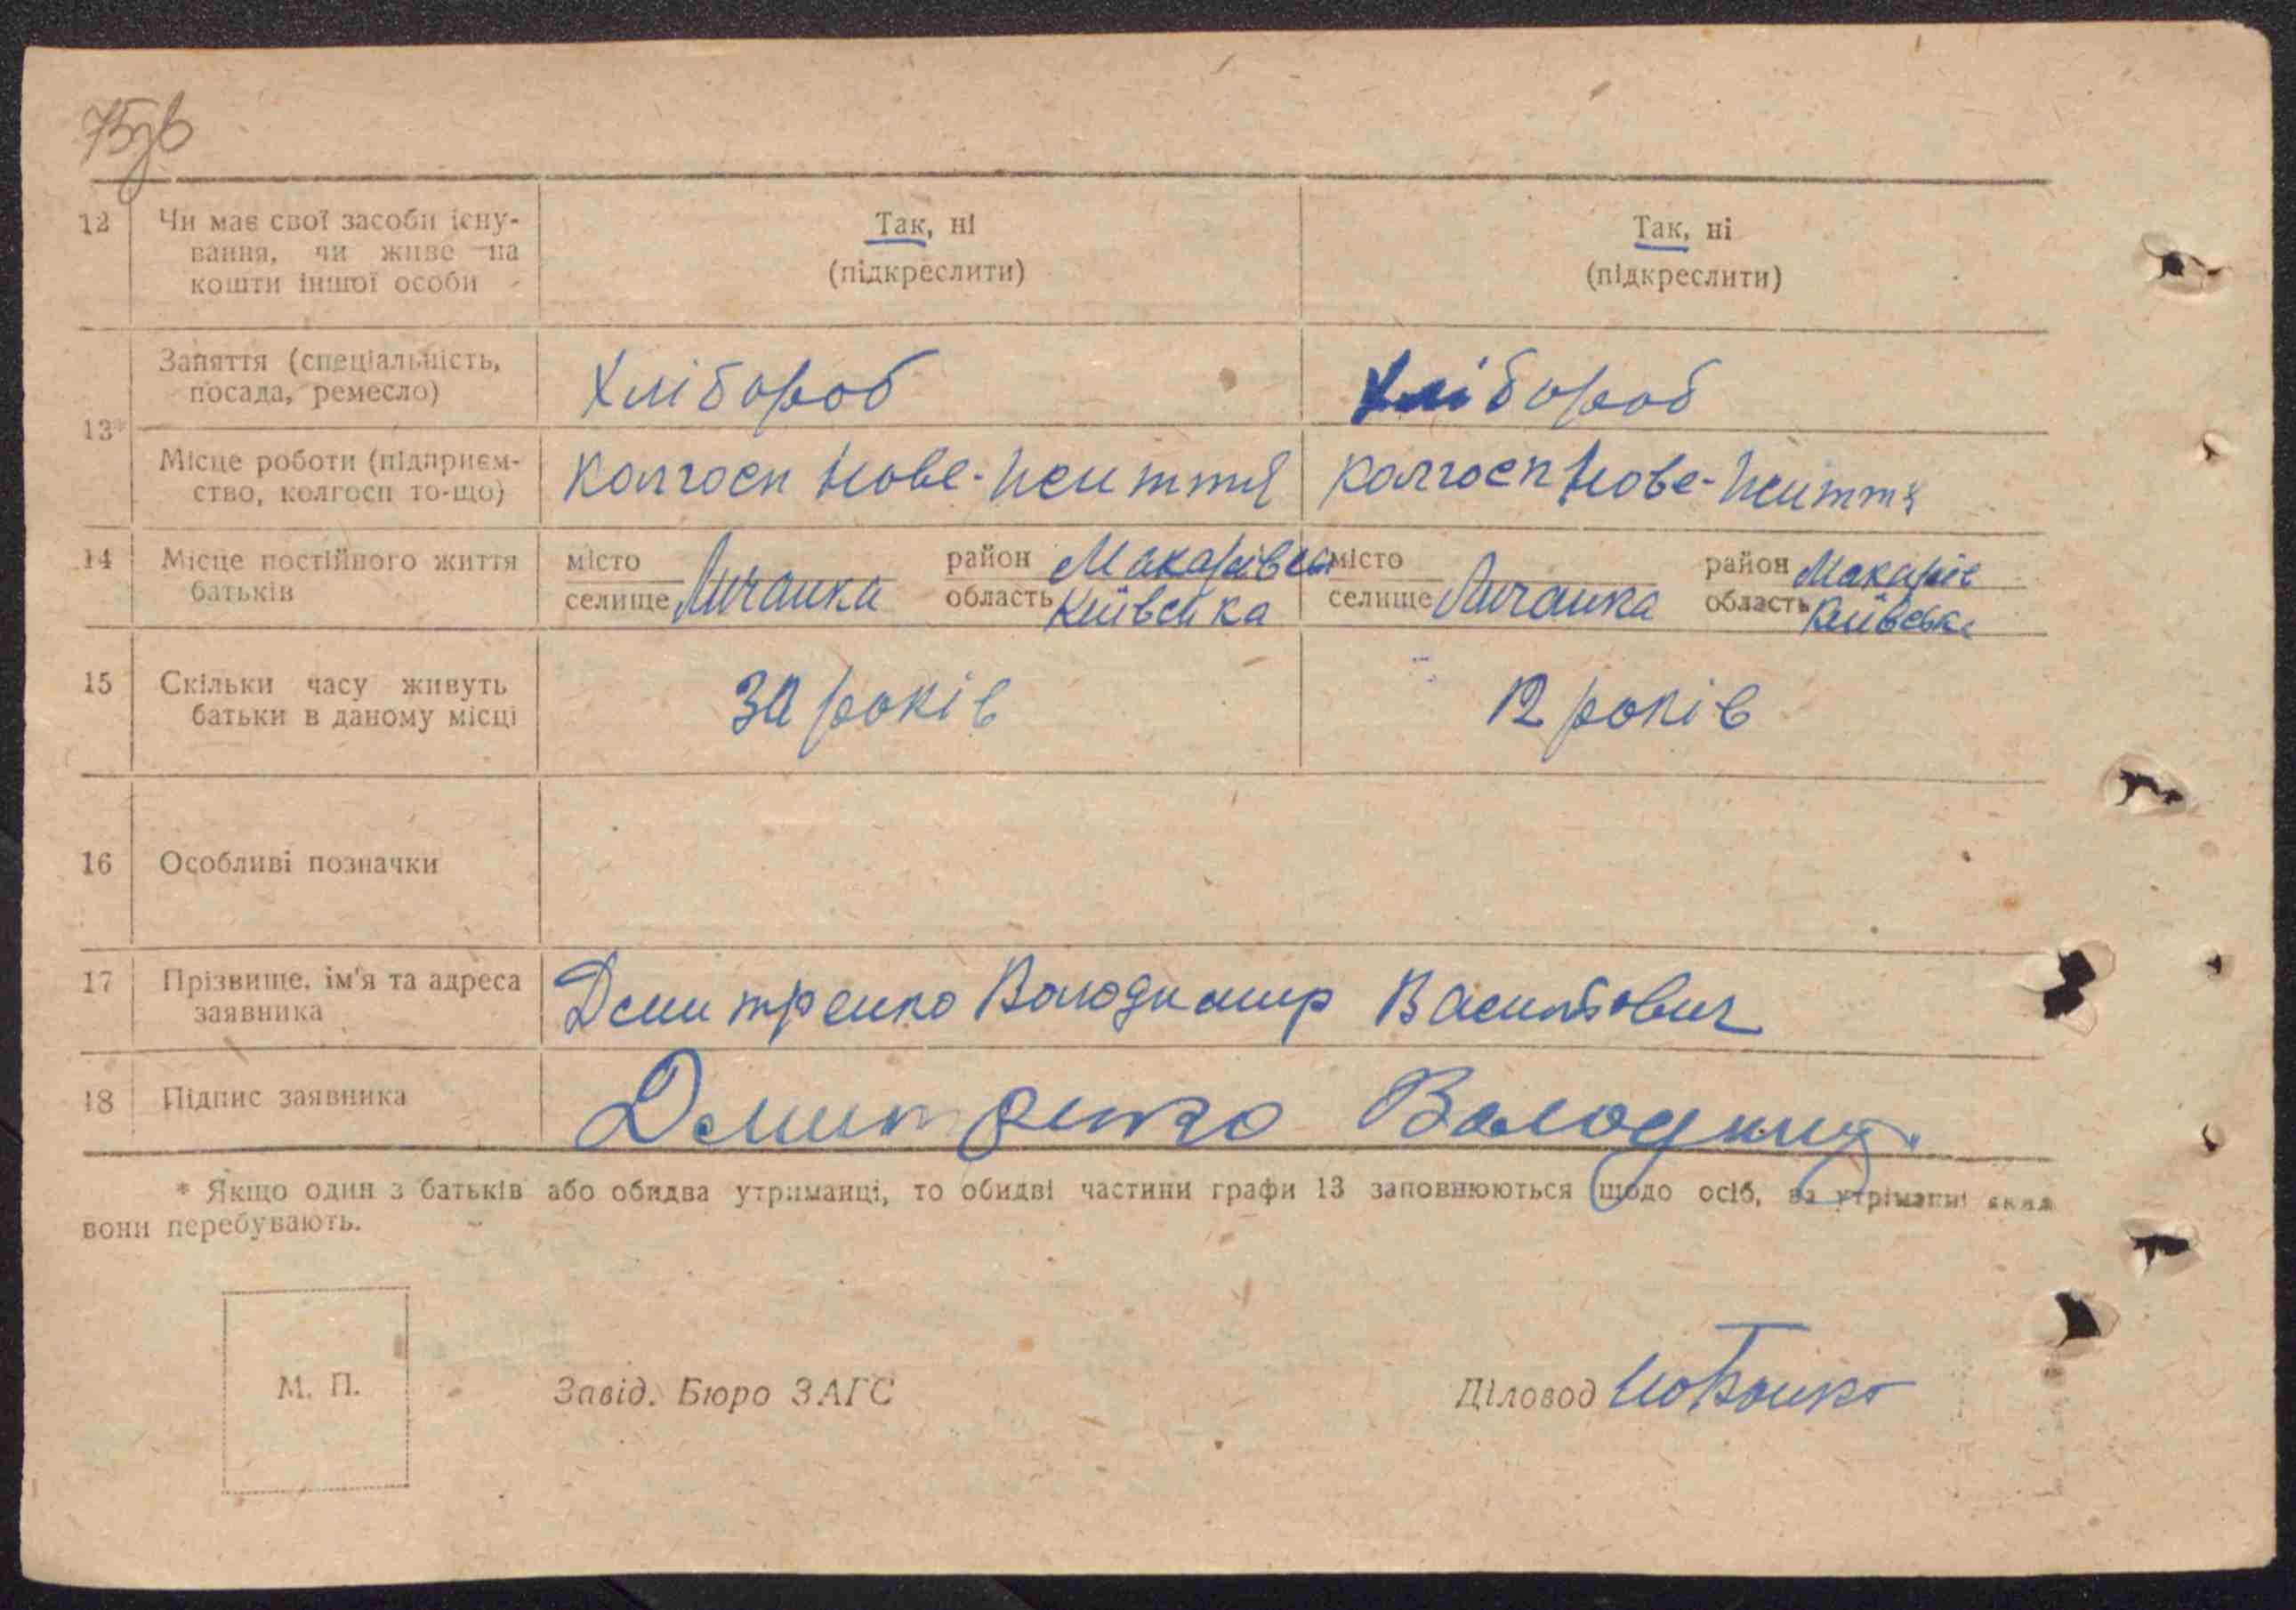 75зв
12 Чи має свої засоби існу- Так, ні Так, ні
вання, чи живе на (підкреслити) (підкреслити)
кошти іншої особи
13* Заняття (спеціальність, Хлібороб Хлібороб
посада, ремесло)
Місце роботи (підприєм- колгосп Нове-Життя колгосп Нове-Життя
ство, колгосп то-що)
14 Місце постійного життя місто район Макарівсь місто район Макарів
батьків селище Личанка область Київська селище Личанка область Київська
15 Скільки часу живуть 30 років 12 років
батьки в даному місці
16 Особливі позначки
17 Прізвище, ім'я та адреса Демитренко Володимир Васильович
заявника
18 Підпис заявника Демитренко Володимир.
* Якщо один з батьків або обидва утриманці, то обидві частини графи 13 заповнюються щодо осіб, на утриманні яких
вони перебувають.
М. П. Завід. Бюро ЗАГС Діловод